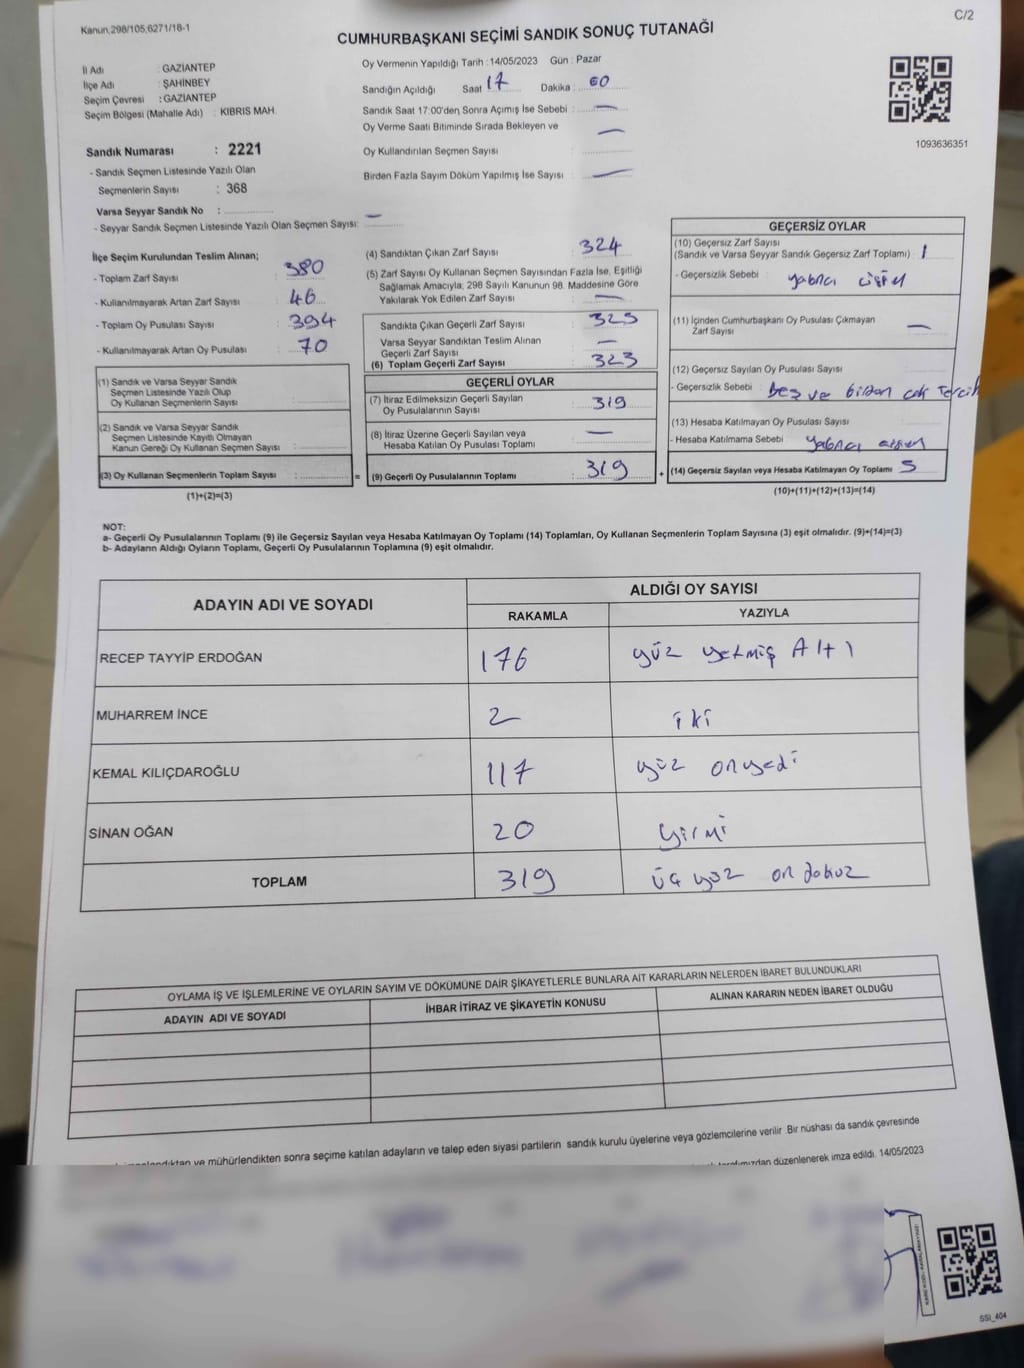 Kanun,298/105,6271/18-1
C/2
CUMHURBAŞKANI SEÇİMİ SANDIK SONUÇ TUTANAĞI
İl Adı : GAZİANTEP
İlçe Adı : ŞAHİNBEY
Seçim Çevresi : GAZİANTEP
Seçim Bölgesi (Mahalle Adı) : KIBRIS MAH.
Sandık Numarası : 2221
- Sandık Seçmen Listesinde Yazılı Olan
Seçmenlerin Sayısı : 368
Varsa Seyyar Sandık No :
- Seyyar Sandık Seçmen Listesinde Yazılı Olan Seçmen Sayısı: —
Oy Vermenin Yapıldığı Tarih : 14/05/2023 Gün : Pazar
Sandığın Açıldığı Saat 17 Dakika : 00
Sandık Saat 17:00'den Sonra Açımış İse Sebebi : —
Oy Verme Saati Bitiminde Sırada Bekleyen ve
Oy Kullandırılan Seçmen Sayısı : —
Birden Fazla Sayım Döküm Yapılmış İse Sayısı : —
1093636351
İlçe Seçim Kurulundan Teslim Alınan;
- Toplam Zarf Sayısı : 380
- Kullanılmayarak Artan Zarf Sayısı : 46
- Toplam Oy Pusulası Sayısı : 394
- Kullanılmayarak Artan Oy Pusulası : 70
(1) Sandık ve Varsa Seyyar Sandık
Seçmen Listesinde Yazılı Olup
Oy Kullanan Seçmenlerin Sayısı :
(2) Sandık ve Varsa Seyyar Sandık
Seçmen Listesinde Kayıtlı Olmayan
Kanun Gereği Oy Kullanan Seçmen Sayısı :
(3) Oy Kullanan Seçmenlerin Toplam Sayısı :
(1)+(2)=(3)
=
(4) Sandıktan Çıkan Zarf Sayısı : 324
(5) Zarf Sayısı Oy Kullanan Seçmen Sayısından Fazla İse, Eşitliği
Sağlamak Amacıyla, 298 Sayılı Kanunun 98. Maddesine Göre
Yakılarak Yok Edilen Zarf Sayısı : —
Sandıkta Çıkan Geçerli Zarf Sayısı : 323
Varsa Seyyar Sandıktan Teslim Alınan
Geçerli Zarf Sayısı : —
(6) Toplam Geçerli Zarf Sayısı : 323
GEÇERLİ OYLAR
(7) İtiraz Edilmeksizin Geçerli Sayılan
Oy Pusulalarının Sayısı : 319
(8) İtiraz Üzerine Geçerli Sayılan veya
Hesaba Katılan Oy Pusulası Toplamı : —
(9) Geçerli Oy Pusulalarının Toplamı : 319
+
GEÇERSİZ OYLAR
(10) Geçersiz Zarf Sayısı
(Sandık ve Varsa Seyyar Sandık Geçersiz Zarf Toplamı) : 1
- Geçersizlik Sebebi : yabancı
(11) İçinden Cumhurbaşkanı Oy Pusulası Çıkmayan
Zarf Sayısı : —
(12) Geçersiz Sayılan Oy Pusulası Sayısı :
- Geçersizlik Sebebi : Boş ve birden çok Tercih
(13) Hesaba Katılmayan Oy Pusulası Sayısı :
- Hesaba Katılmama Sebebi : yabancı
(14) Geçersiz Sayılan veya Hesaba Katılmayan Oy Toplamı : 5
(10)+(11)+(12)+(13)=(14)
NOT:
a- Geçerli Oy Pusulalarının Toplamı (9) ile Geçersiz Sayılan veya Hesaba Katılmayan Oy Toplamı (14) Toplamları, Oy Kullanan Seçmenlerin Toplam Sayısına (3) eşit olmalıdır. (9)+(14)=(3)
b- Adayların Aldığı Oyların Toplamı, Geçerli Oy Pusulalarının Toplamına (9) eşit olmalıdır.
ADAYIN ADI VE SOYADI
ALDIĞI OY SAYISI
RAKAMLA YAZIYLA
RECEP TAYYİP ERDOĞAN 176 yüz yetmiş Altı
MUHARREM İNCE 2 iki
KEMAL KILIÇDAROĞLU 117 yüz onyedi
SİNAN OĞAN 20 yirmi
TOPLAM 319 üç yüz on dokuz
OYLAMA İŞ VE İŞLEMLERİNE VE OYLARIN SAYIM VE DÖKÜMÜNE DAİR ŞİKAYETLERLE BUNLARA AİT KARARLARIN NELERDEN İBARET BULUNDUKLARI
ADAYIN ADI VE SOYADI İHBAR İTİRAZ VE ŞİKAYETİN KONUSU ALINAN KARARIN NEDEN İBARET OLDUĞU
ve mühürlendikten sonra seçime katılan adayların ve talep eden siyasi partilerin sandık kurulu üyelerine veya gözlemcilerine verilir Bir nüshası da sandık çevresinde
düzenlenerek imza edildi. 14/05/2023
SSI_404